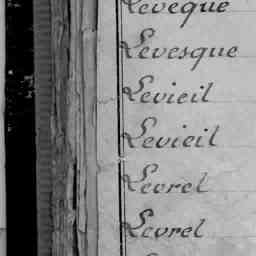 Leveque
Levesque
Levieil
Levieil
Levrel
Levrel